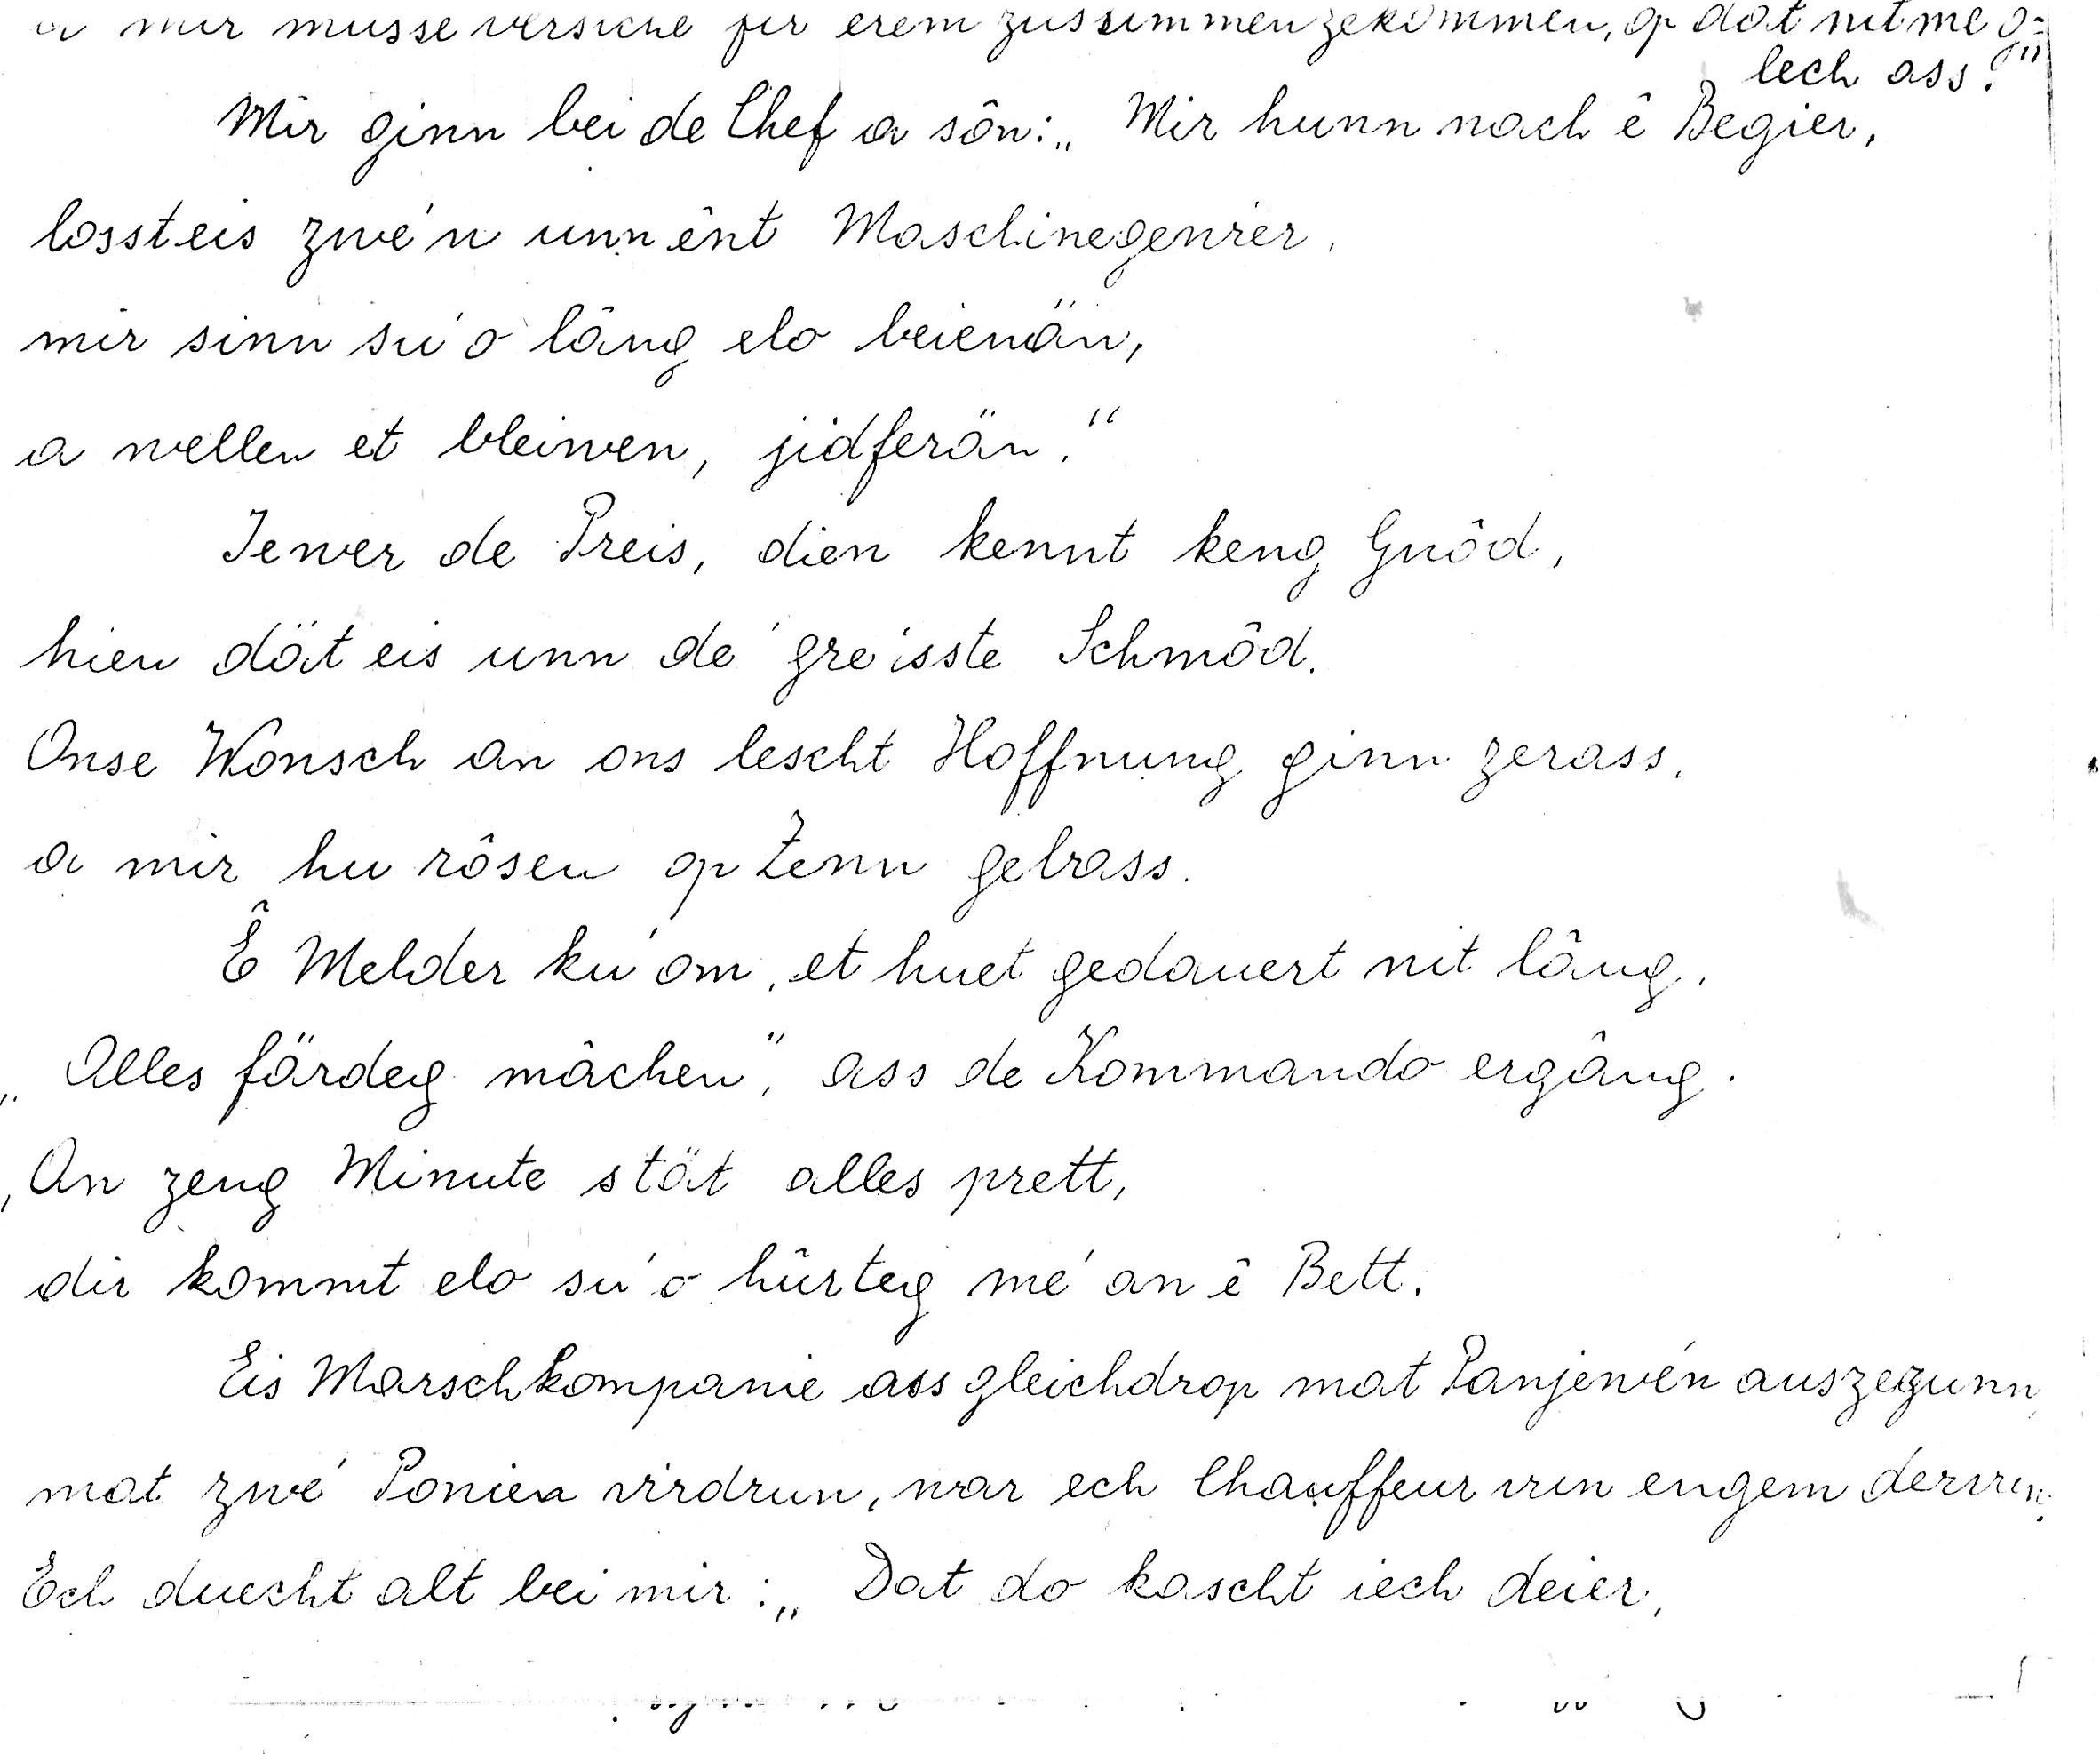 a mir musse versiche fir erem zusummen zekommen, op dat nit me g=
lech ass."
Mir ginn bei de Chef a sôn: „Mir hunn nach ê Begier,
losst eis zwé'n unn ênt Maschinegewier,
mir sinn su'o lâng elo beienän,
a wellen et bleiwen, jidferän."
Iewer de Preis, dien kennt keng Gnôd,
hien dät eis unn de' gre'isste Schmôd.
Onse Wonsch an ons lescht Hoffnung ginn zerass,
a mir hu rôsen op Zenn gebrass.
Ê Melder ku'om, et huet gedauert nit lâng,
„Alles färdeg mâchen", ass de Kommando ergâng.
„An zeng Minute stät alles prett,
dir kommt elo su'o hûrteg me' an ê Bett.
Eis Marschkompanie ass gleichdrop mat Panjewén auszegunn,
mat zwé Ponien virdrun, war ech Chauffeur vun engem dervun.
Ech duecht alt bei mir: „Dat do kascht iech deier,